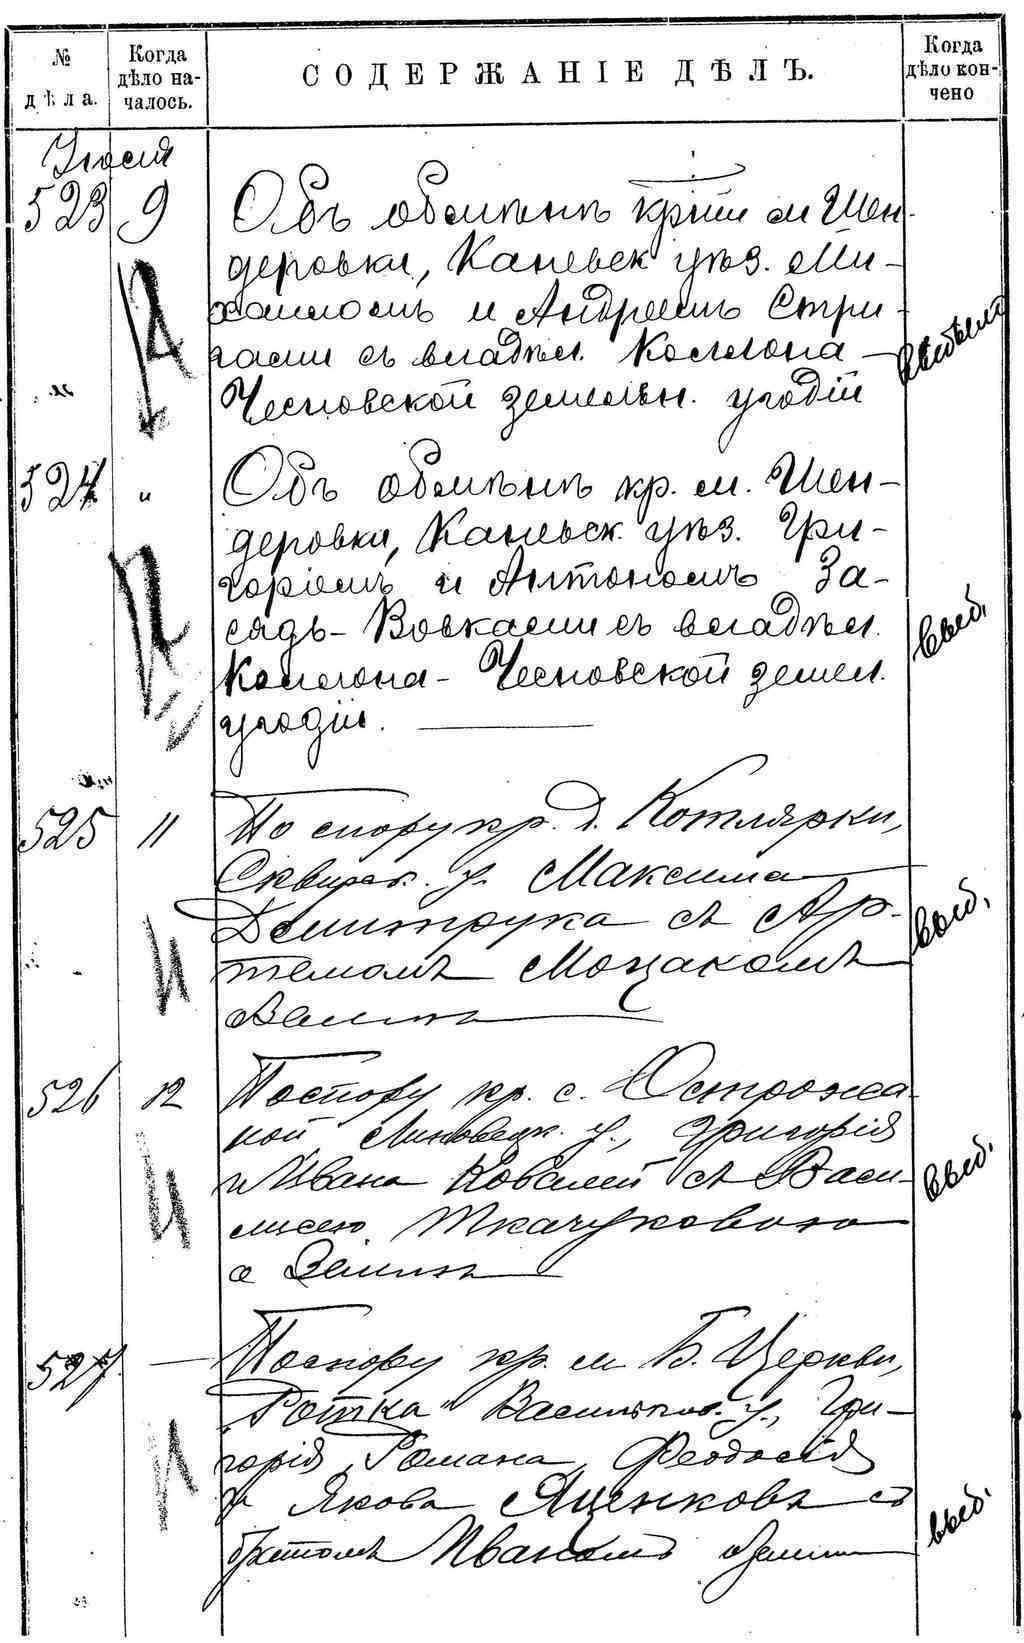 № дѣла.
Когда дѣло началось.
СОДЕРЖАНІЕ ДѢЛЪ.
Когда дѣло кончено
Іюля
523 9 Объ обмѣнѣ кр-ми м Шен-
деровки, Каневск уѣз. Ми-
хаиломъ и Андреемъ Стри-
гами съ владѣл. Коллона-
Чесновской земельн. угодій
выдѣлено
524 " Объ обмѣнѣ кр. м. Шен-
деровки, Каневск. уѣз. Гри-
горіемъ и Антономъ За-
сядь-Вовками съ владѣл.
Коллона-Чесновской земел.
угодій.
выд.
525 11 По спору кр. д. Котлярки,
Сквирск. у. Максима
Дмитрука съ Ар-
темомъ Моцакомъ
о землѣ
выд.
526 12 По спору кр. с. Острожа-
ной Липовецк. у., Григорія
и Ивана Ковалей съ Васи-
лисею Ткачуковою
о землѣ
выд.
527. — По спору кр. м Б. Церкви,
"Ротка" Васильков. у., Гри-
горія, Романа, Феодосія
и Якова Яценковъ съ
братомъ Иваномъ о земл
выд.
И
И
И